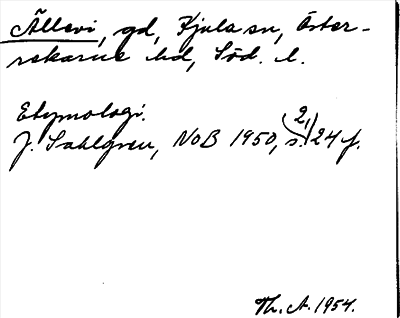 Ällevi, gd, Kjula sn, Öster-
rekarne hd, Söd. l.
Etymologi.
J. Sahlgren, NoB 1950, s. 2, 24 f.
Th. A. 1954.